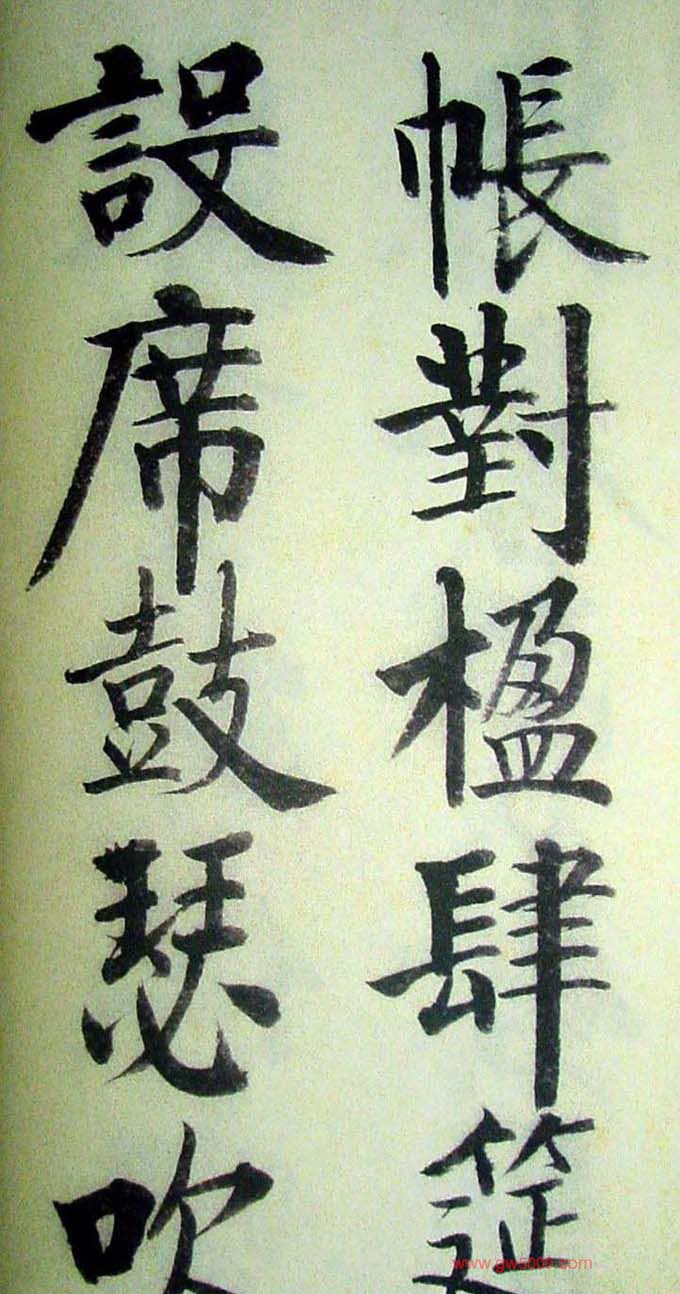 帳對楹肆筵
設席鼓瑟吹
www.gw5000.com